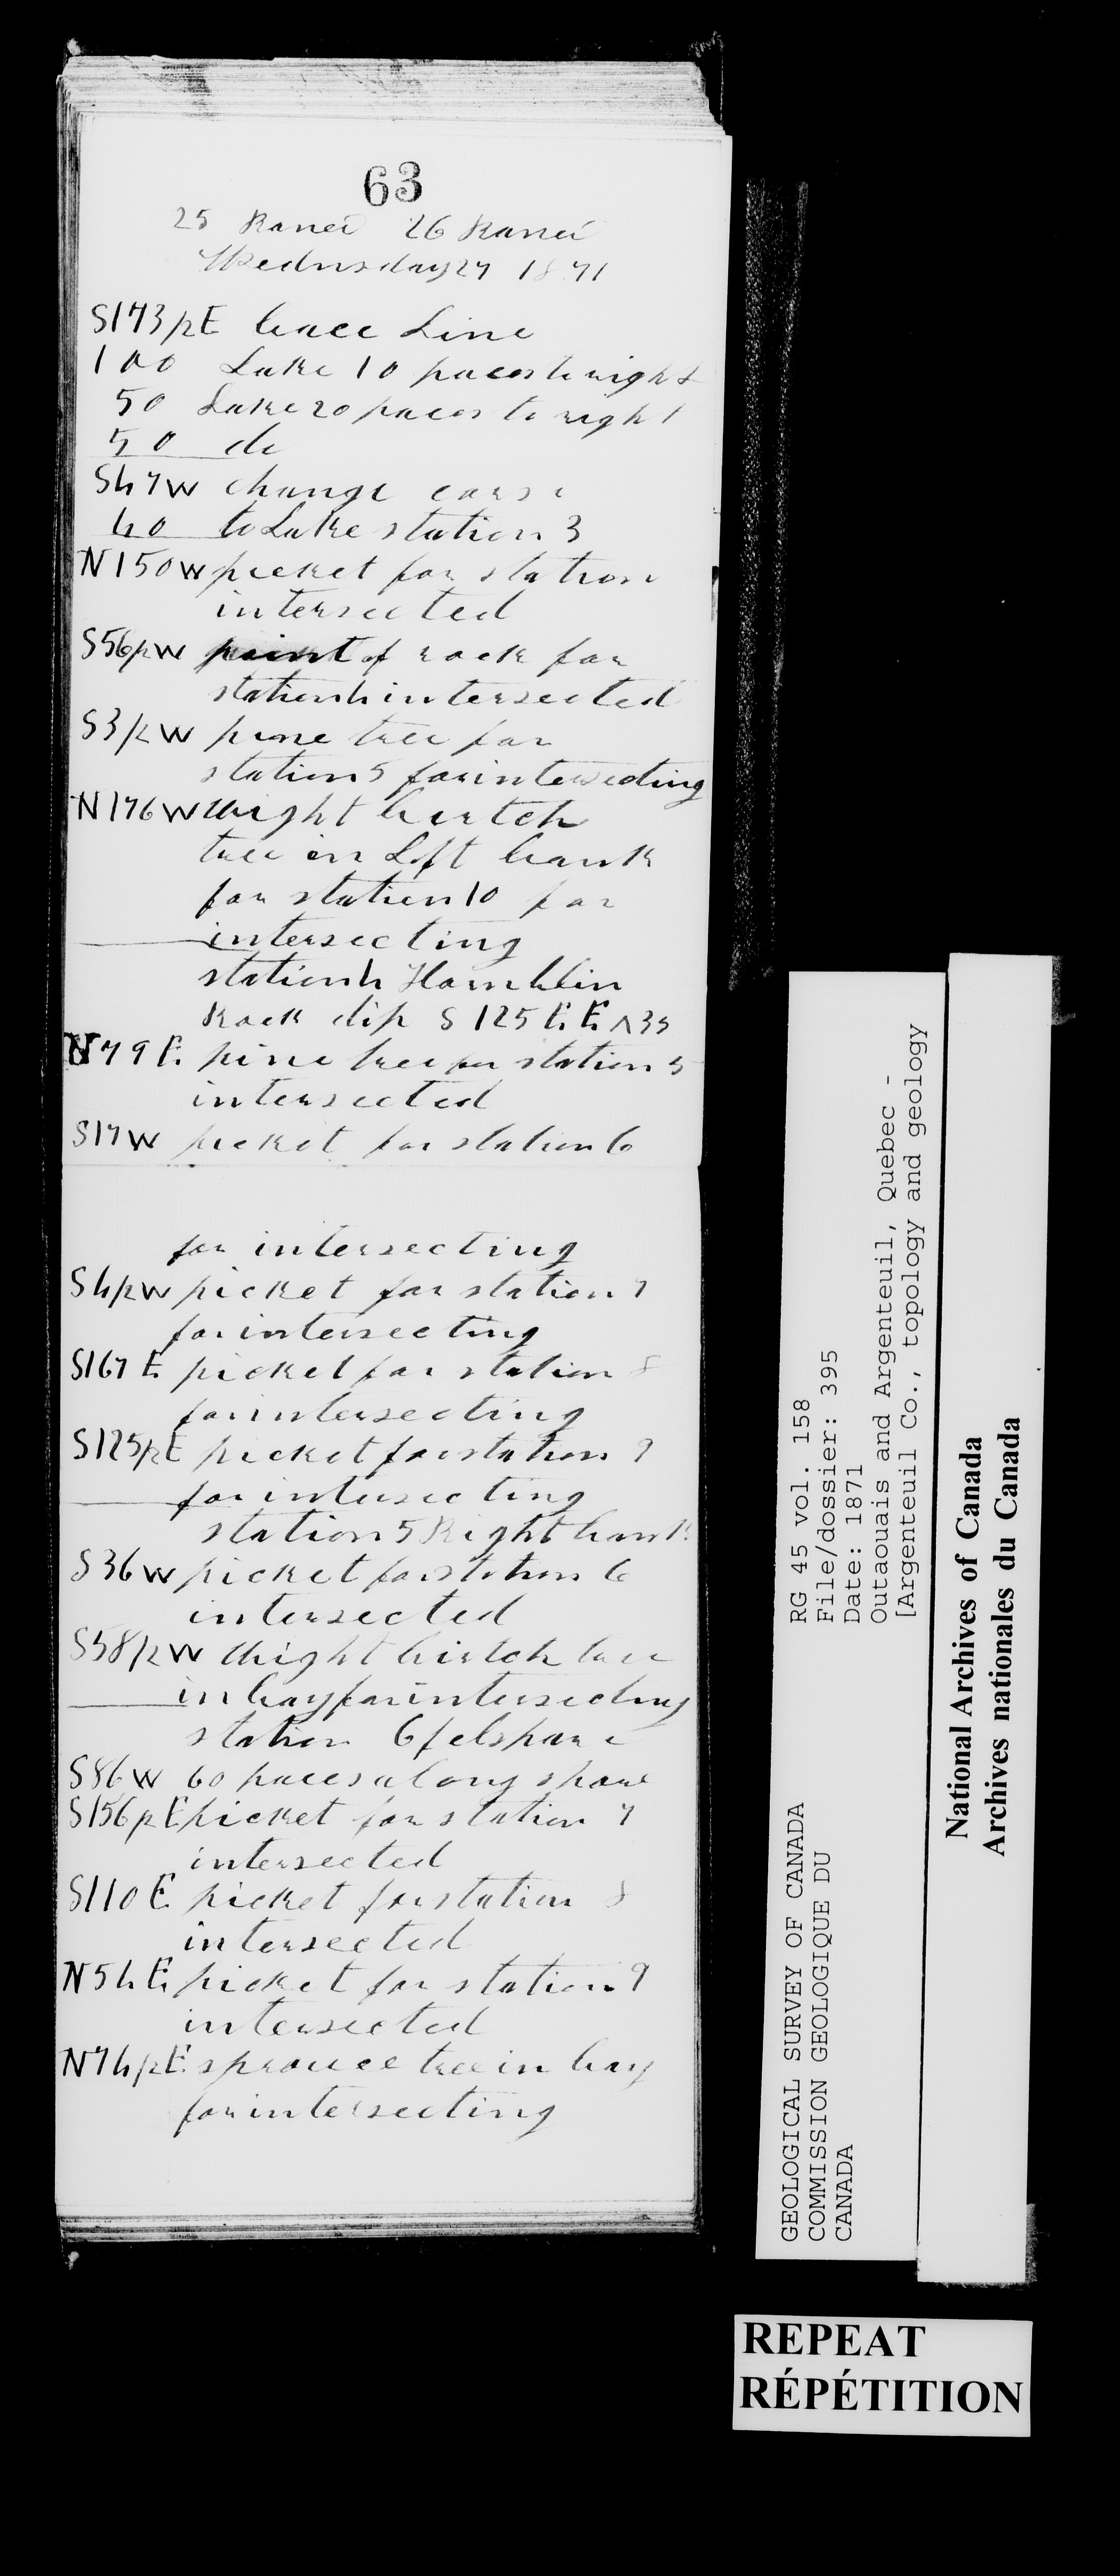 63
25 Rance 26 Rance
Wednsday 27 1871
S173/2E bace Line
100 Lake 10 paces to right
50 Lake 20 paces to right
50 do
S47W change corse
40 to Lake station 3
N150W picket for station
intersected
S56/2W point of rock for
station 4 intersected
S3/2W pine tree for
station 5 for intersecting
N176W whight birtch
tree on Left bank
for station 10 for
intersecting
station 4 Hornblin
Rock dip S 125 E. E. ^35
N79E. pine tree for station 5
intersected
S17W picket for station 6
for intersecting
S4/2W picket for station 7
for intersecting
S167 E picket for station 8
for intersecting
S125/2E picket for station 9
for intersecting
station 5 Right bank
S36W picket for station 6
intersected
S58/2W whight birtch tree
in bay for intersecting
station 6 felspare
S86W 60 paces along shore
S156/2E picket for station 7
intersected
S110E. picket for station 8
intersected
N54E. picket for station 9
intersected
N74/2E. sprouce tree in bay
for intersecting
GEOLOGICAL SURVEY OF CANADA
COMMISSION GEOLOGIQUE DU
CANADA
RG 45 vol. 158
File/dossier: 395
Date: 1871
Outaouais and Argenteuil, Quebec -
[Argenteuil Co., topology and geology
National Archives of Canada
Archives nationales du Canada
REPEAT
RÉPÉTITION